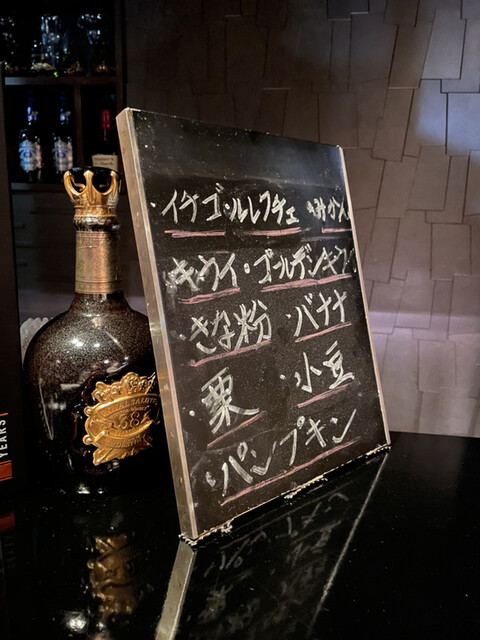 ・イチゴ・ルレクチェ ・みかん
・キウイ・ゴールデンキウイ
・きな粉 ・バナナ
・栗 ・小豆
・パンプキン
ROYAL SALUTE
38
YEARS